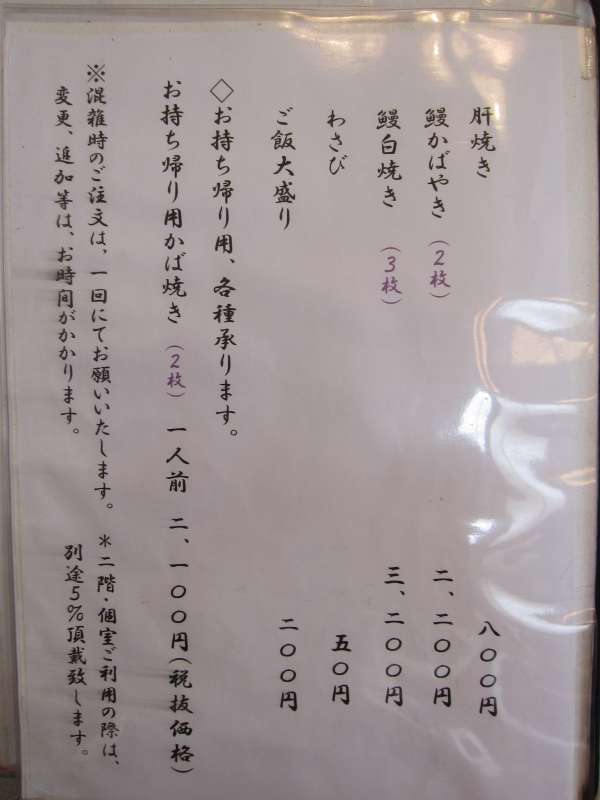 肝焼き 八〇〇円
鰻かばやき（2枚） 二、二〇〇円
鰻白焼き（3枚） 三、二〇〇円
わさび 五〇円
ご飯大盛り 二〇〇円
◇お持ち帰り用、各種承ります。
お持ち帰り用かば焼き（2枚）一人前 二、一〇〇円（税抜価格）
※混雑時のご注文は、一回にてお願いいたします。
変更、追加等は、お時間がかかります。
＊二階・個室ご利用の際は、
別途5％頂戴致します。